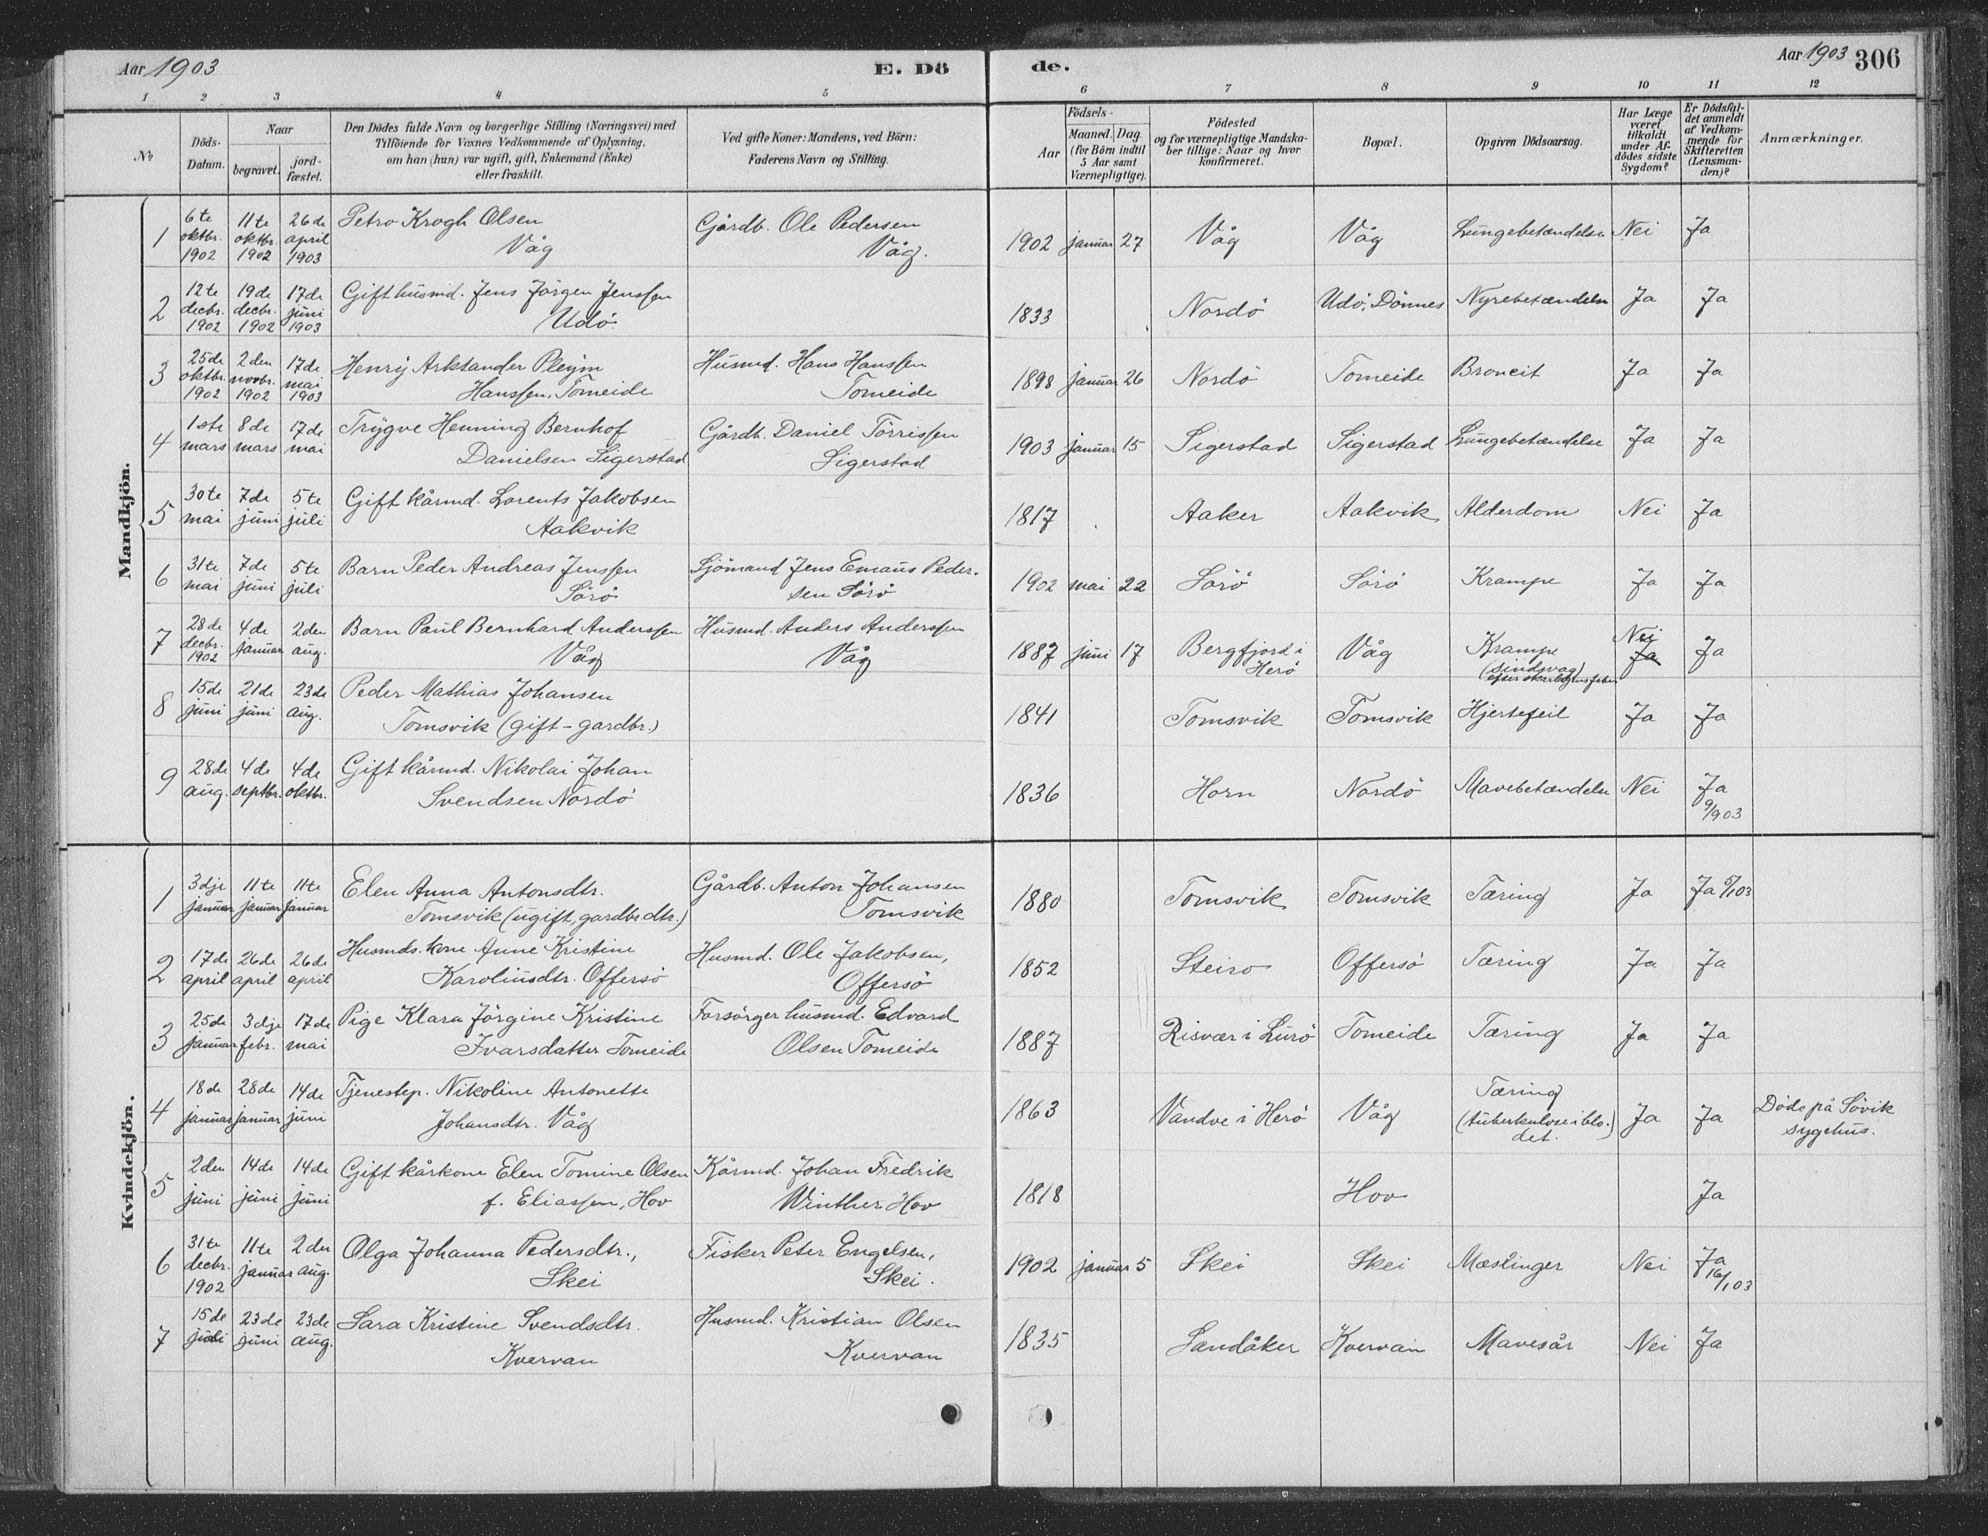 Aar 1903 E. Dö de. Aar 1903 306
1 2 3 4 5 6 7 8 9 10 11 12
№ Döds-Datum. Naar begravet. jordfæstet. Den Dödes fulde Navn og borgerlige Stilling (Næringsvei) med Tilföiende for Voxnes Vedkommende af Oplysning, om han (hun) var ugift, gift, Enkemand (Enke) eller fraskilt. Ved gifte Koner: Mandens, ved Börn: Faderens Navn og Stilling. Födsels- Aar Maaned. Dag. (for Börn indtil 5 Aar samt Værnepligtige). Födested og for værnepligtige Mandskaber tillige: Naar og hvor konfirmeret. Bopæl. Opgiven Dödsaarsag. Har Læge været tilkaldt under Afdödes sidste Sygdom? Er Dödsfaldet anmeldt af Vedkommende for Skifteretten (Lensmanden)? Anmærkninger.
Mandkjön.
1 6te oktbr. 1902 11te oktbr. 1902 26de april 1903 Petro Krogh Olsen Våg Gårdb. Ole Pedersen Våg. 1902 januar 27 Våg Våg Lungebetændelse Nei Ja
2 12te decbr. 1902 19de decbr. 1902 17de juni 1903 Gift husmd. Jens Jörgen Jenssen Udö 1833 Nordö Udö, Dönnes Nyrebetændelse Ja Ja
3 25de oktbr. 1902 2den novbr. 1902 17de mai 1903 Henrij Arktander Pleym Hanssen, Tomeide Husmd. Hans Hanssen Tomeide 1898 januar 26 Nordö Tomeide Broncit Ja Ja
4 1ste mars 8de mars 17de mai Trygve Henning Bernhof Danielsen Sigerstad Gårdb. Daniel Törrissen Sigerstad 1903 januar 15 Sigerstad Sigerstad Lungebetændelse Ja Ja
5 30te mai 7de juni 5te juli Gift kårmd. Lorents Jakobsen Aakvik 1817 Aaker Aakvik Alderdom Nei Ja
6 31te mai 7de juni 5te juli Barn Peder Andreas Jenssen Sörö Sjömand Jens Emaus Pedersen Sörö 1902 mai 22 Sörö Sörö Krampe Ja Ja
7 28de decbr. 1902 4de januar 2den aug. Barn Paul Bernhard Anderssen Våg Husmd. Anders Anderssen Våg 1887 juni 17 Bergfjord i Herö Våg Krampe (sindsvag) Nei Ja Ja
8 15de juni 21de juni 23de aug. Peder Mathias Johansen Tomsvik (gift - gardbr.) 1841 Tomsvik Tomsvik Hjertefeil Ja Ja
9 28de aug. 4de septbr. 4de oktbr. Gift kårmd. Nikolai Johan Svendsen Nordö 1836 Horn Nordö Mavebetændelse Nei Ja 9/9 03
Kvindekjön.
1 3dje januar 11te januar 11te januar Elen Anna Antonsdtr. Tomsvik (ugift, gardbr.dtr.) Gårdb. Anton Johansen Tomsvik 1880 Tomsvik Tomsvik Tæring Ja Ja 5/1 03
2 17de april 26de april 26de april Husmds. kone Anne Kristine Karoliusdtr. Offersö Husmd. Ole Jakobsen, Offersö 1852 Steiro Offersö Tæring Ja Ja
3 25de januar 3dje febr. 17de mai Pige Klara Jörgine Kristine Ivarsdatter Tomeide Forsörger husmd. Edvard Olsen Tomeide 1887 Risvær i Lurö Tomeide Tæring Ja Ja
4 18de januar 28de januar 14de juni Tjenestep. Nikoline Antonette Johansdtr. Våg 1863 Vandve i Herö Våg Tæring (tuberkulose i blodet.) Ja Ja Döde på Sövik sygehus.
5 2den juni 14de juni 14de juni Gift kårkone Elen Tomine Olsen f. Eliassen, Hov Kårmd. Johan Fredrik Winther Hov 1818 Hov Ja
6 31te decbr. 1902 11te januar 2den aug. Olga Johanna Pedersdtr., Skei Fisker Peter Engelsen, Skei. 1902 januar 5 Skei Skei Mæslinger Nei Ja 16/1 03
7 15de juni 23de juni 23de aug. Sara Kristine Svendsdtr. Kvervan Husmd. Kristian Olsen Kvervan 1835 Sandåker Kvervan Mavesår Nei Ja